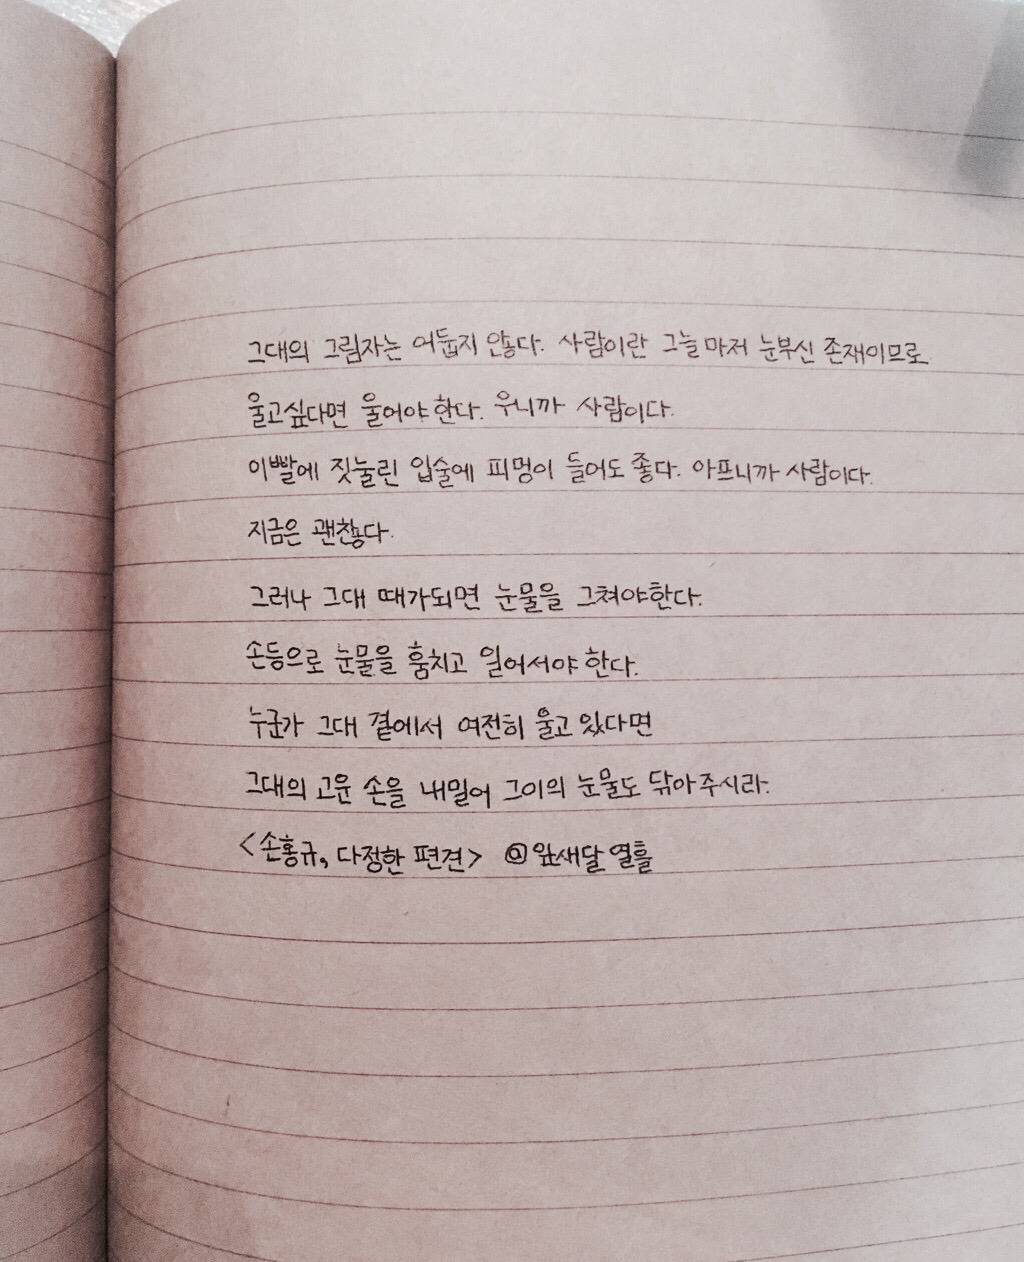 그대의 그림자는 어둡지 않다. 사람이란 그늘마저 눈부신 존재이므로
울고싶다면 울어야한다. 우니까 사람이다.
이빨에 짓눌린 입술에 피멍이 들어도 좋다. 아프니까 사람이다.
지금은 괜찮다.
그러나 그대 때가되면 눈물을 그쳐야한다.
손등으로 눈물을 훔치고 일어서야 한다.
누군가 그대 곁에서 여전히 울고 있다면
그대의 고운 손을 내밀어 그이의 눈물도 닦아주시라.
<손홍규, 다정한 편견> @앞새달열흘